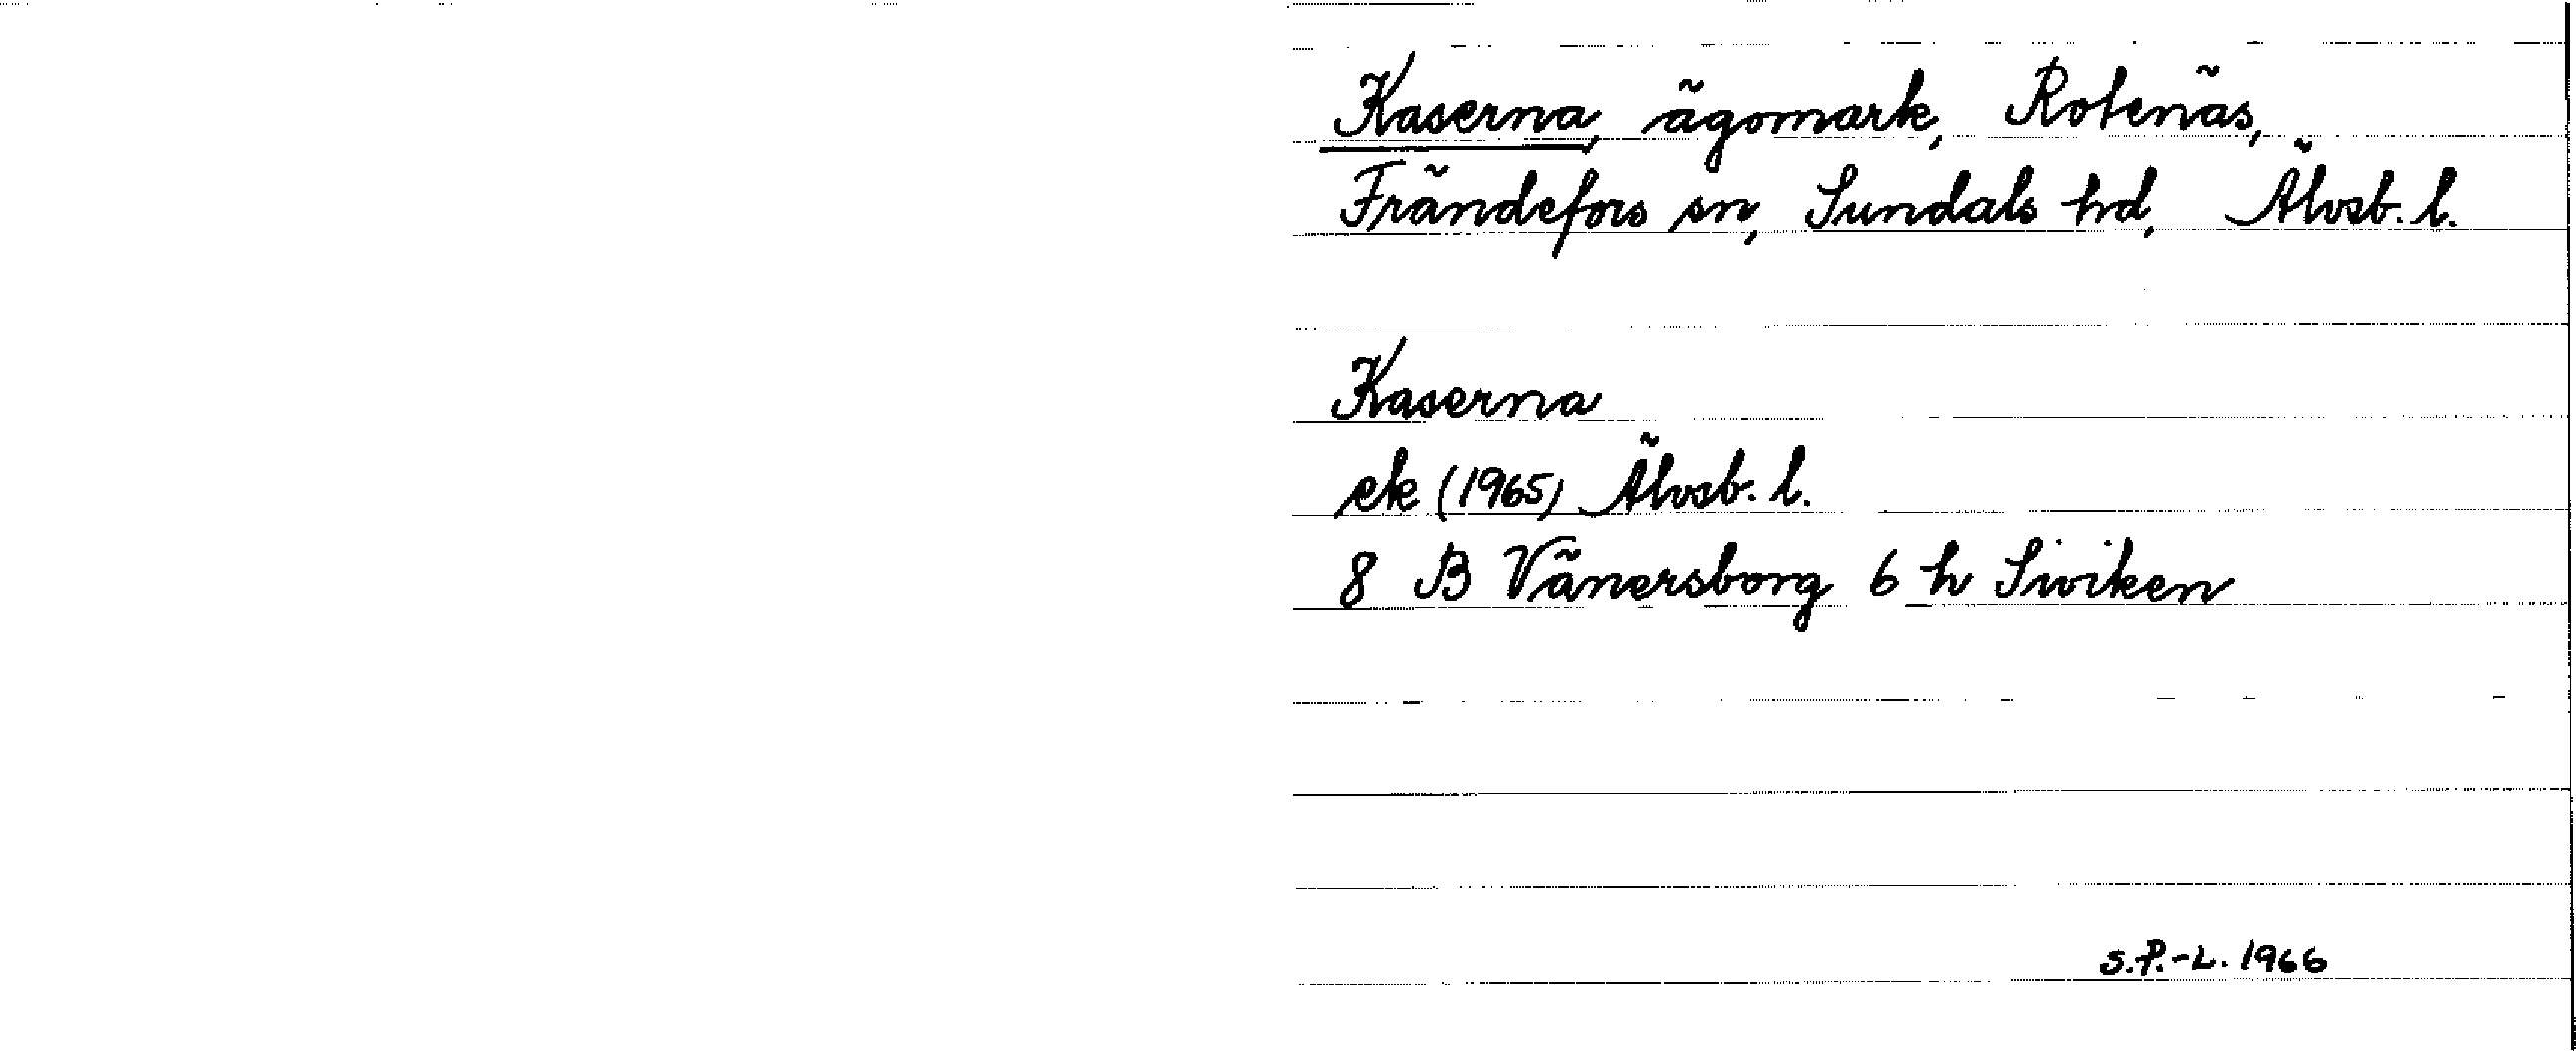 Kaserna, ägomark, Rotenäs,
Frändefors sn, Sundals hd, Älvsb. l.
Kaserna
ek (1965) Älvsb. l.
8 B Vänersborg 6 h Siviken
S.P.-L. 1966